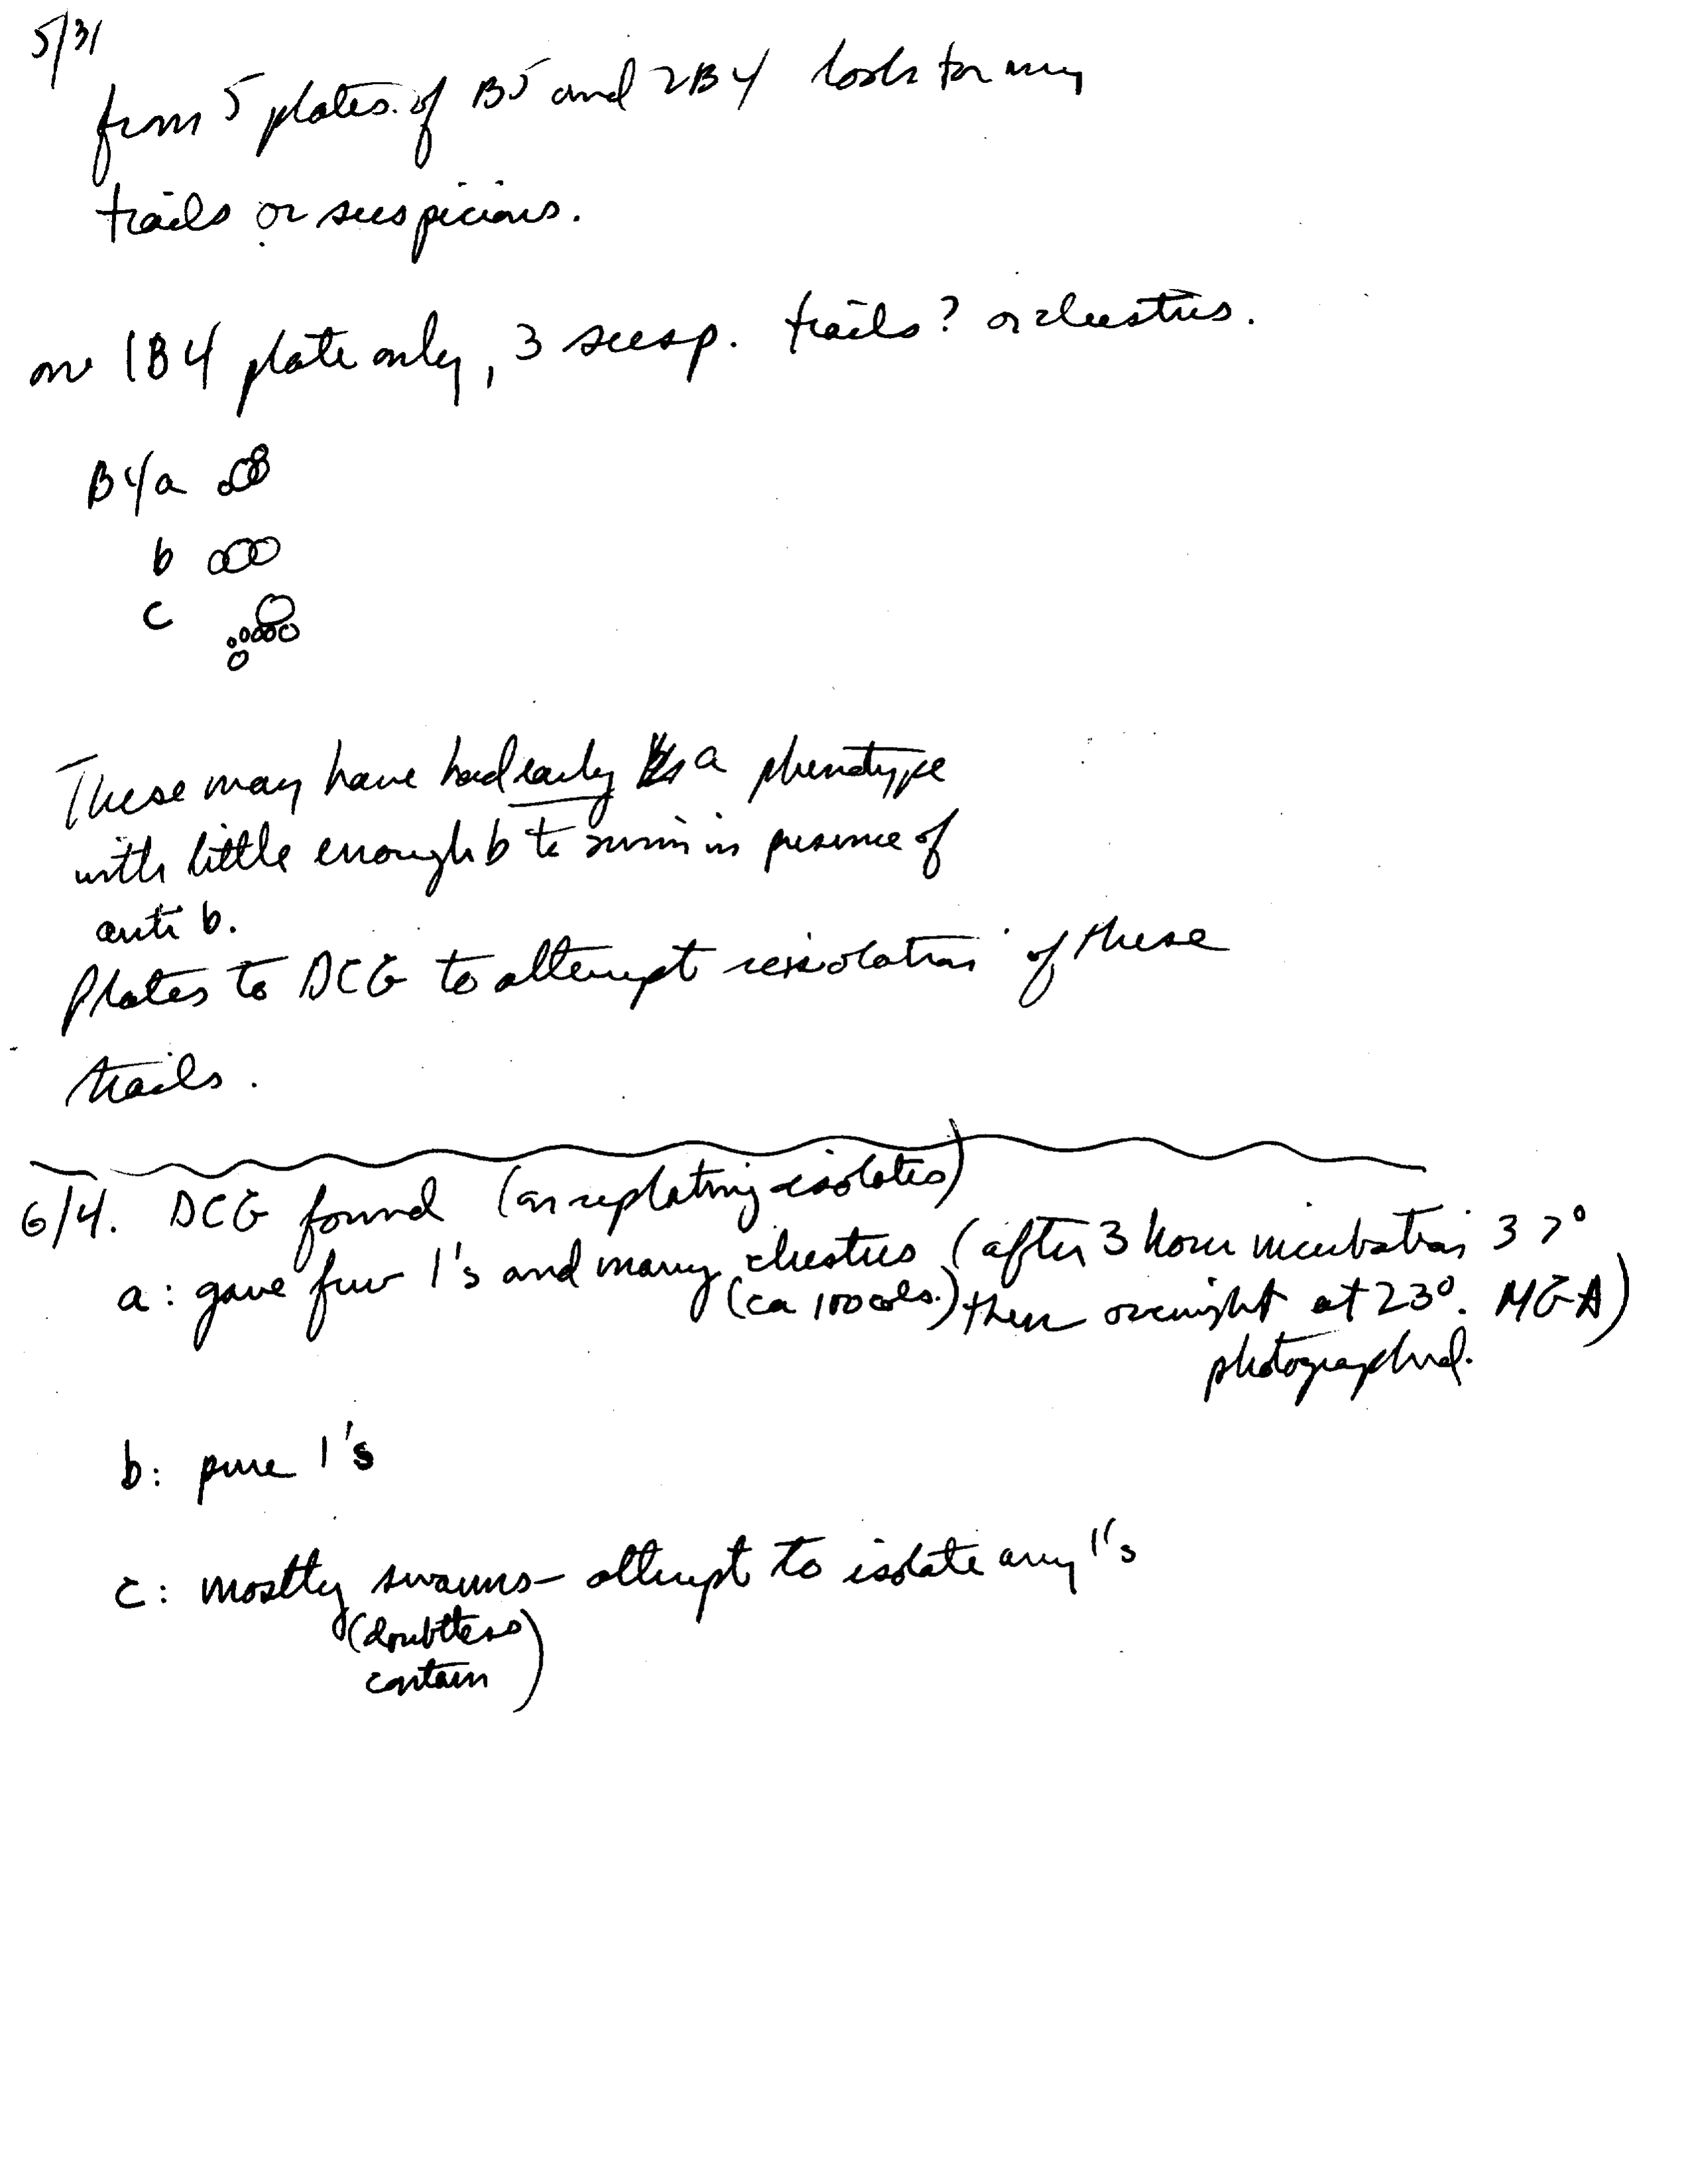 5/31
from 5 plates of B5 and 2B4 look for any
trails or suspicious.
on 1B4 plate only, 3 susp. trails? or clusters.
B4/a
b
c
These may have had early a phenotype
with little enough b to swim in presence of
anti b.
Plates to DCG to attempt reisolation of these
trails.
6/4. DCG found (on replating isolates)
a: gave few 1's and many clusters (after 3 hour incubation 37°
(ca 100 cols.) then overnight at 23°. MGA)
photographed.
b: pure 1's
c: mostly swarms – attempt to isolate any 1's
(doubtless
contam)